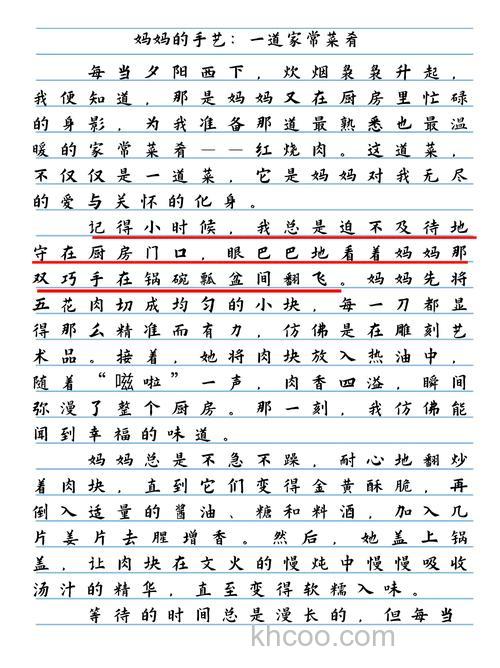 妈妈的手艺：一道家常菜肴
每当夕阳西下，炊烟袅袅升起，
我便知道，那是妈妈又在厨房里忙碌
的身影，为我准备那道最熟悉也最温
暖的家常菜肴——红烧肉。这道菜，
不仅仅是一道菜，它是妈妈对我无尽
的爱与关怀的化身。
记得小时候，我总是迫不及待地
守在厨房门口，眼巴巴地看着妈妈那
双巧手在锅碗瓢盆间翻飞。妈妈先将
五花肉切成均匀的小块，每一刀都显
得那么精准而有力，仿佛是在雕刻艺
术品。接着，她将肉块放入热油中，
随着“嗞啦”一声，肉香四溢，瞬间
弥漫了整个厨房。那一刻，我仿佛能
闻到幸福的味道。
妈妈总是不急不躁，耐心地翻炒
着肉块，直到它们变得金黄酥脆，再
倒入适量的酱油、糖和料酒，加入几
片姜片去腥增香。然后，她盖上锅
盖，让肉块在文火的慢炖中慢慢吸收
汤汁的精华，直至变得软糯入味。
等待的时间总是漫长的，但每当
khcoo.com